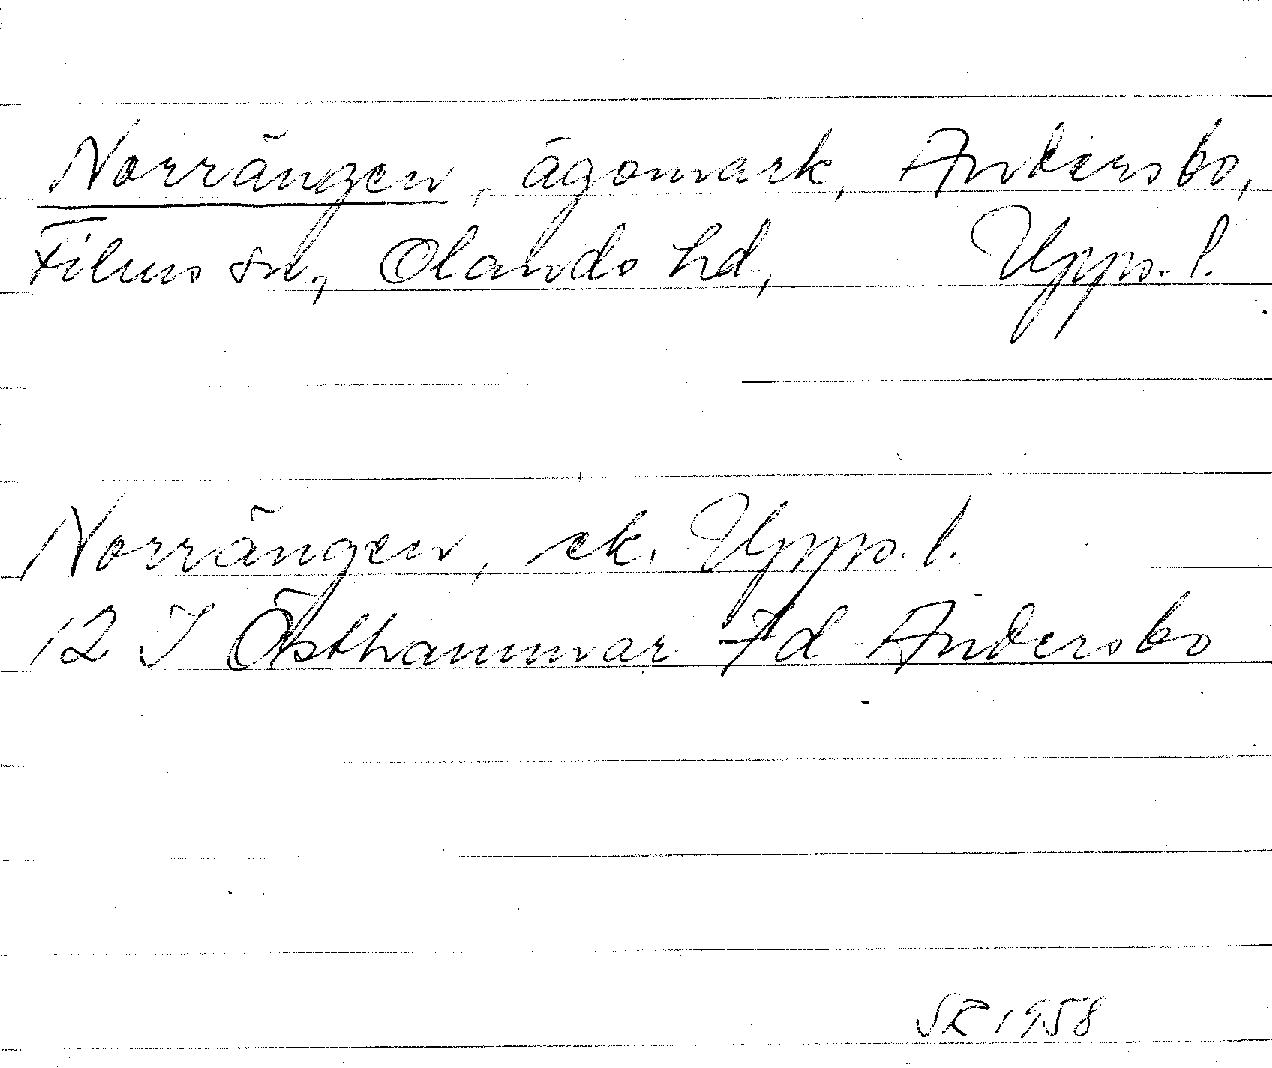 Norrängen, ägomark, Andersbo,
Films sn, Olands hd, Upps. l.
Norrängen, ek. Upps. l.
12 I Östhammar 7d Andersbo
SR 1958